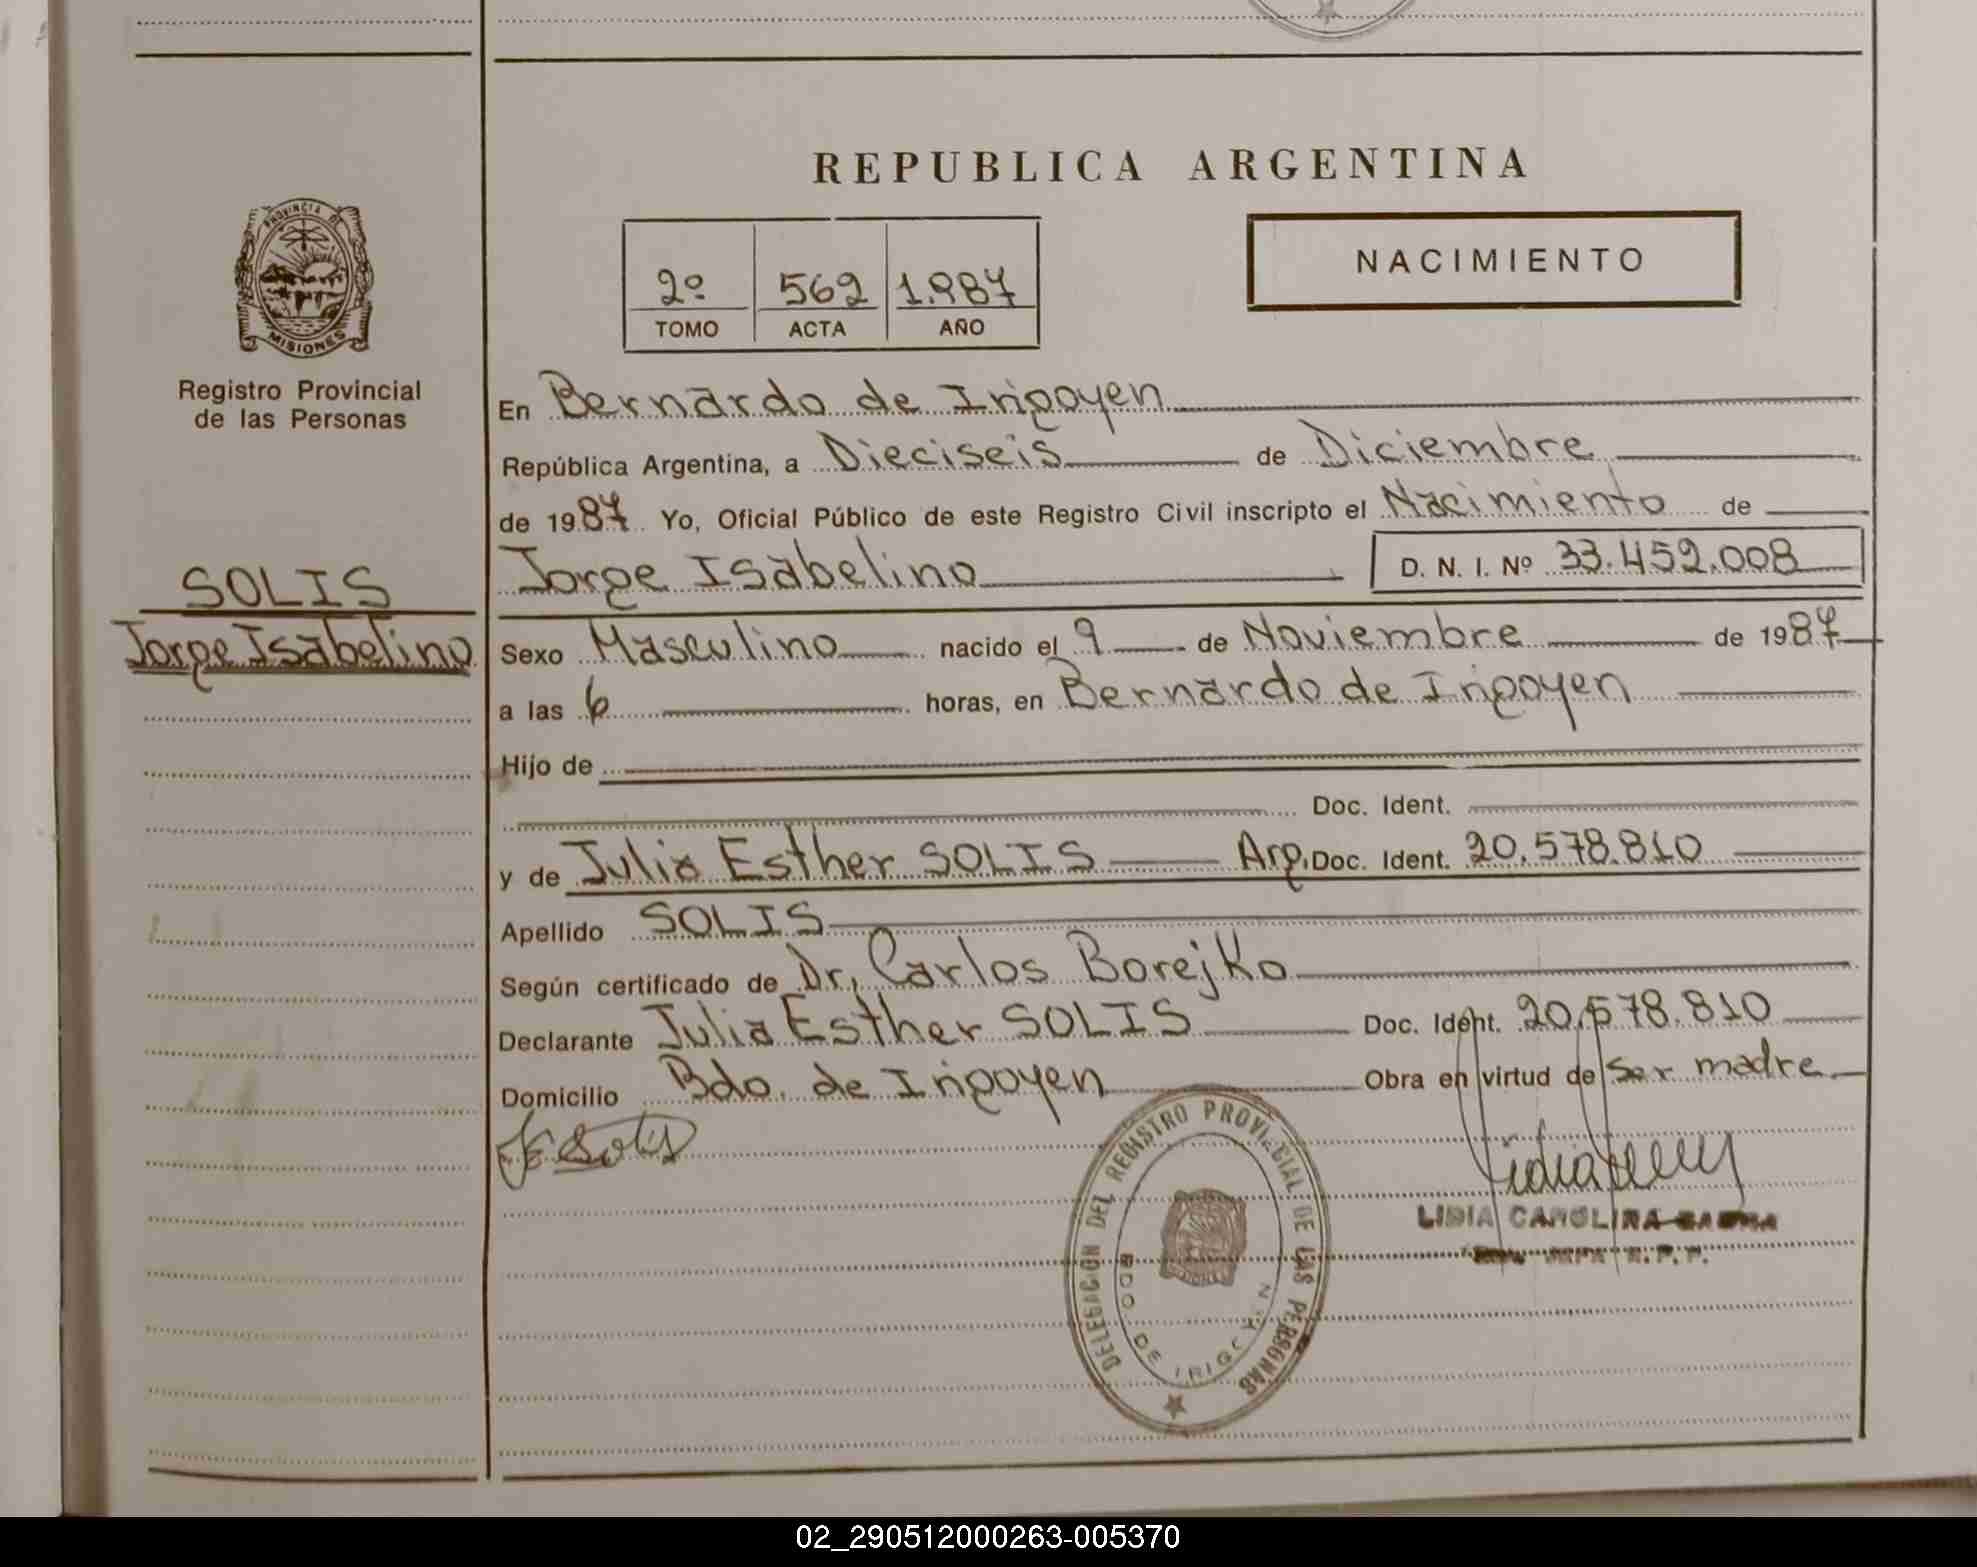 REPUBLICA ARGENTINA
PROVINCIA DE
MISIONES
Registro Provincial
de las Personas
2º 562 1.987
TOMO ACTA AÑO
NACIMIENTO
En Bernardo de Irigoyen
República Argentina, a Dieciseis de Diciembre
de 1987 Yo, Oficial Público de este Registro Civil inscripto el Nacimiento de
Jorge Isabelino D. N. I. Nº 33.452.008
SOLIS
Jorge Isabelino
Sexo Masculino nacido el 9 de Noviembre de 1987
a las 6 horas, en Bernardo de Irigoyen
Hijo de
Doc. Ident.
y de Julia Esther SOLIS Arg. Doc. Ident. 20.578.810
Apellido SOLIS
Según certificado de Dr. Carlos Borejko
Declarante Julia Esther SOLIS Doc. Ident. 20.578.810
Domicilio Bdo. de Irigoyen Obra en virtud de ser madre
JESolis
DELEGACION DEL REGISTRO PROVINCIAL DE LAS PERSONAS
BDO. DE IRIGOYEN
LIDIA CAROLINA
R.P.P.
02_290512000263-005370